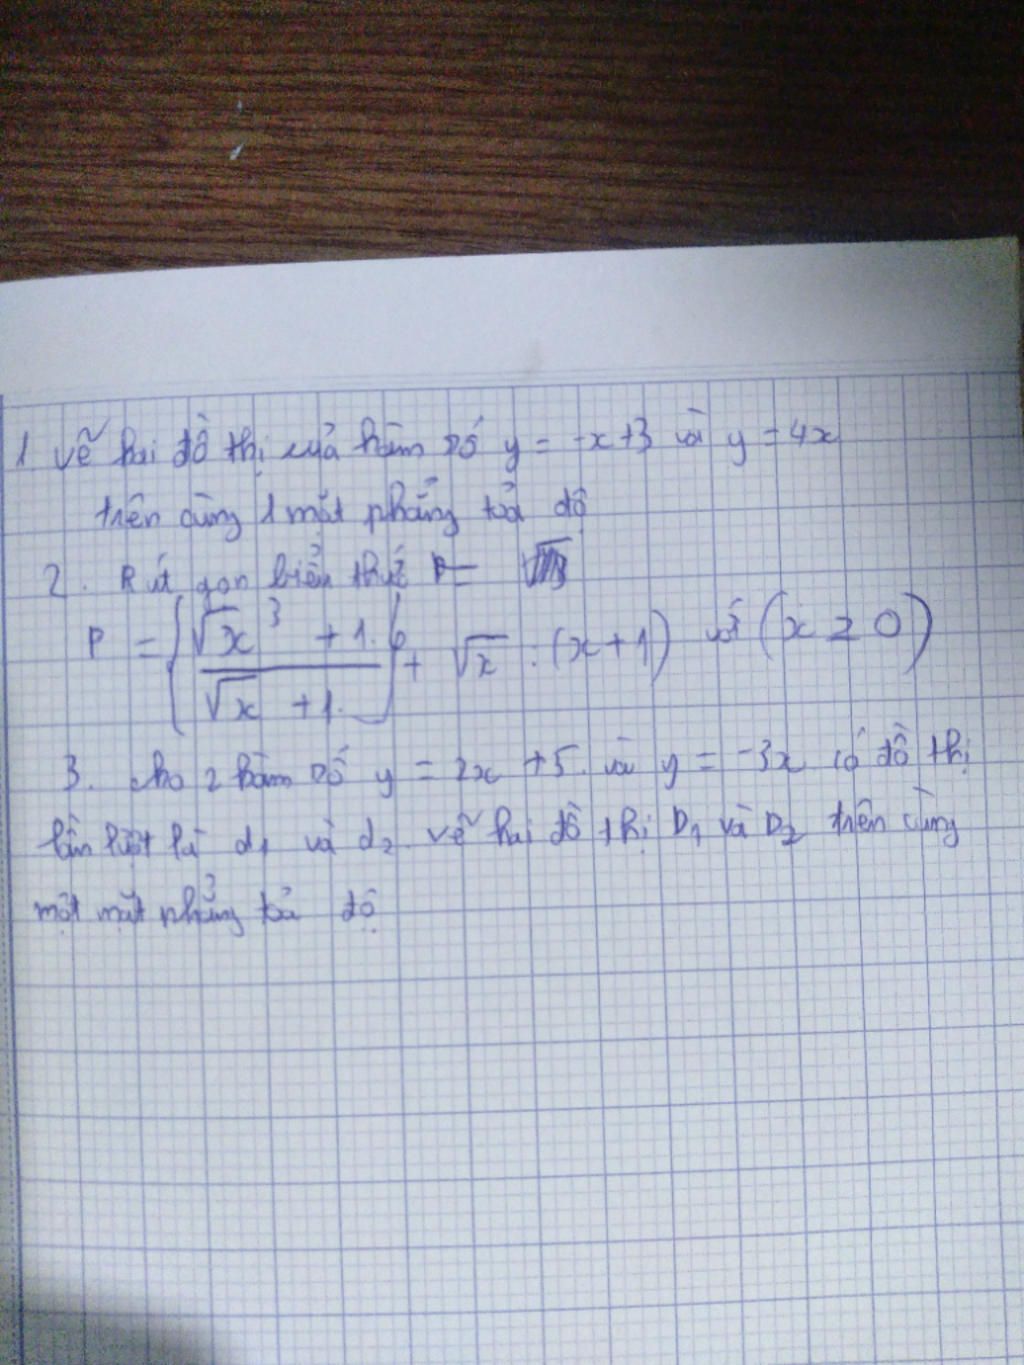 1 vẽ hai đồ thị của hàm số y = -x+3 và y = 4x
trên cùng 1 mặt phẳng toạ độ
2. Rút gọn biểu thức P =
P = (√x³ + 1 / √x + 1) + √x : (x+1) với (x ≥ 0)
3. cho 2 hàm số y = 2x + 5 và y = -3x có đồ thị
lần lượt là d₁ và d₂ vẽ hai đồ thị D₁ và D₂ trên cùng
một mặt phẳng toả độ